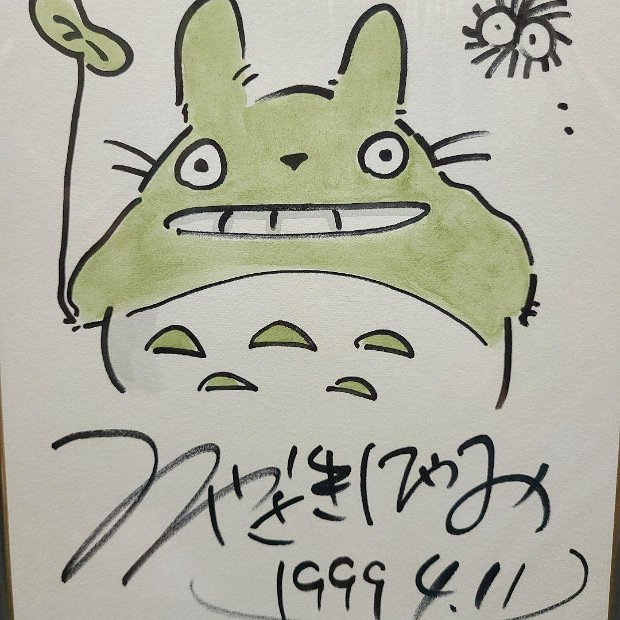 みやざきはやお
1999 4.11